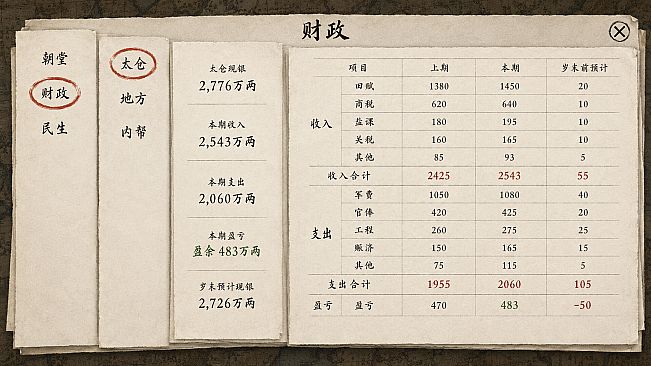 财政
朝堂
财政
民生
太仓
地方
内帑
太仓现银
2,776万两
本期收入
2,543万两
本期支出
2,060万两
本期盈亏
盈余 483万两
岁末预计现银
2,726万两
项目 上期 本期 岁末前预计
收入
田赋 1380 1450 20
商税 620 640 10
盐课 180 195 10
关税 160 165 10
其他 85 93 5
收入合计 2425 2543 55
支出
军费 1050 1080 40
官俸 420 425 20
工程 260 275 25
赈济 150 165 15
其他 75 115 5
支出合计 1955 2060 105
盈亏 盈亏 470 483 -50